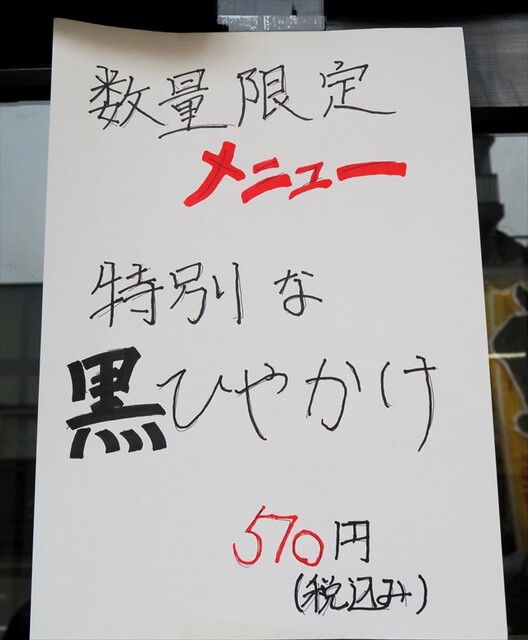 数量限定
メニュー
特別な
黒ひやかけ
570円
(税込み)